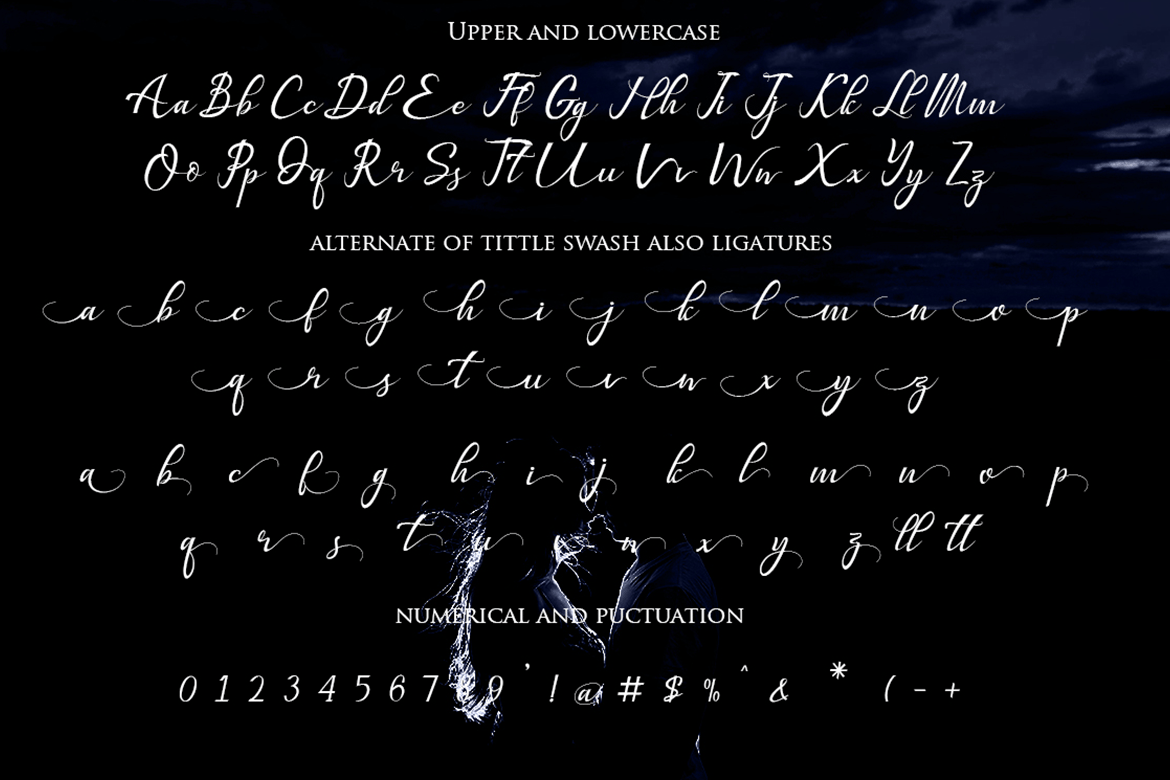 Upper and lowercase
Aa Bb Cc Dd Ee Ff Gg Hh Ii Jj Kk Ll Mm
Oo Pp Qq Rr Ss Tt Uu Vv Ww Xx Yy Zz
ALTERNATE OF TITTLE SWASH ALSO LIGATURES
a b c f g h i j k l m n o p
q r s t u v w x y z
a b c f g h i j k l m n o p
q r s t u v w x y z ll tt
NUMERICAL AND PUCTUATION
0 1 2 3 4 5 6 7 8 9 ' ! @ # $ % ^ & * ( - +